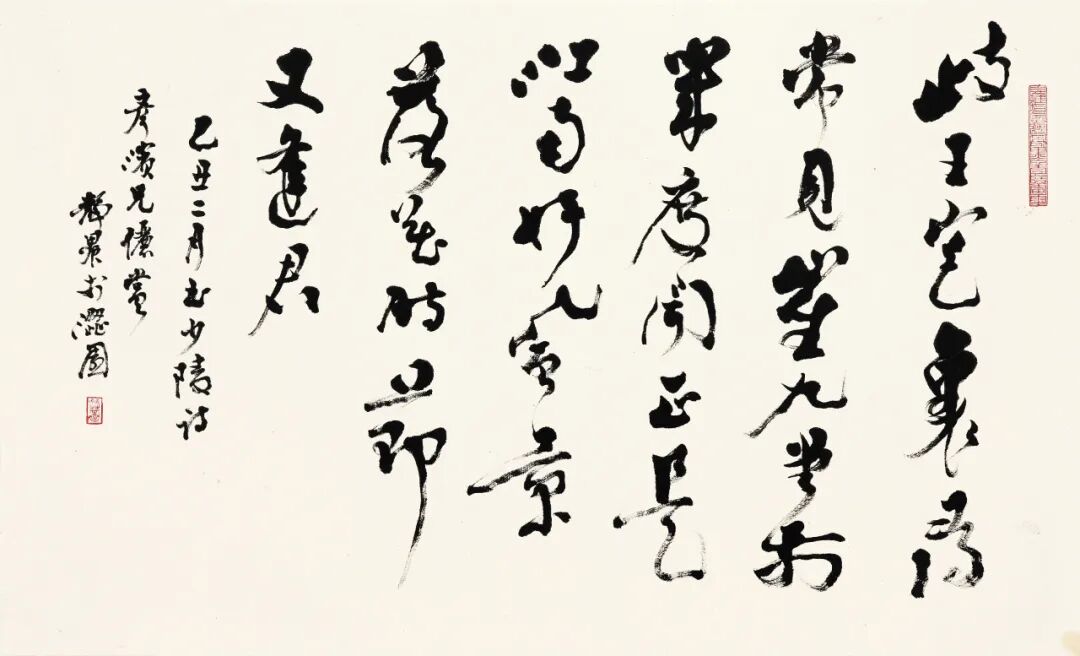 岐王宅裏尋
常見崔九堂前
幾度聞正是
江南好風景
落花時節
又逢君
己丑二月書少陵詩
彥濱兄賞
於澀園